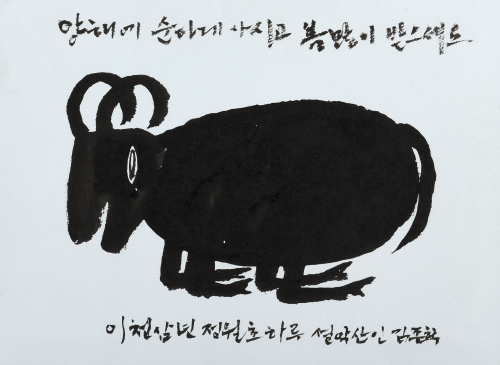 양해에 순하게 사시고 복 많이 받으세요
이천삼년 정월 초하루 설악산인 김종학